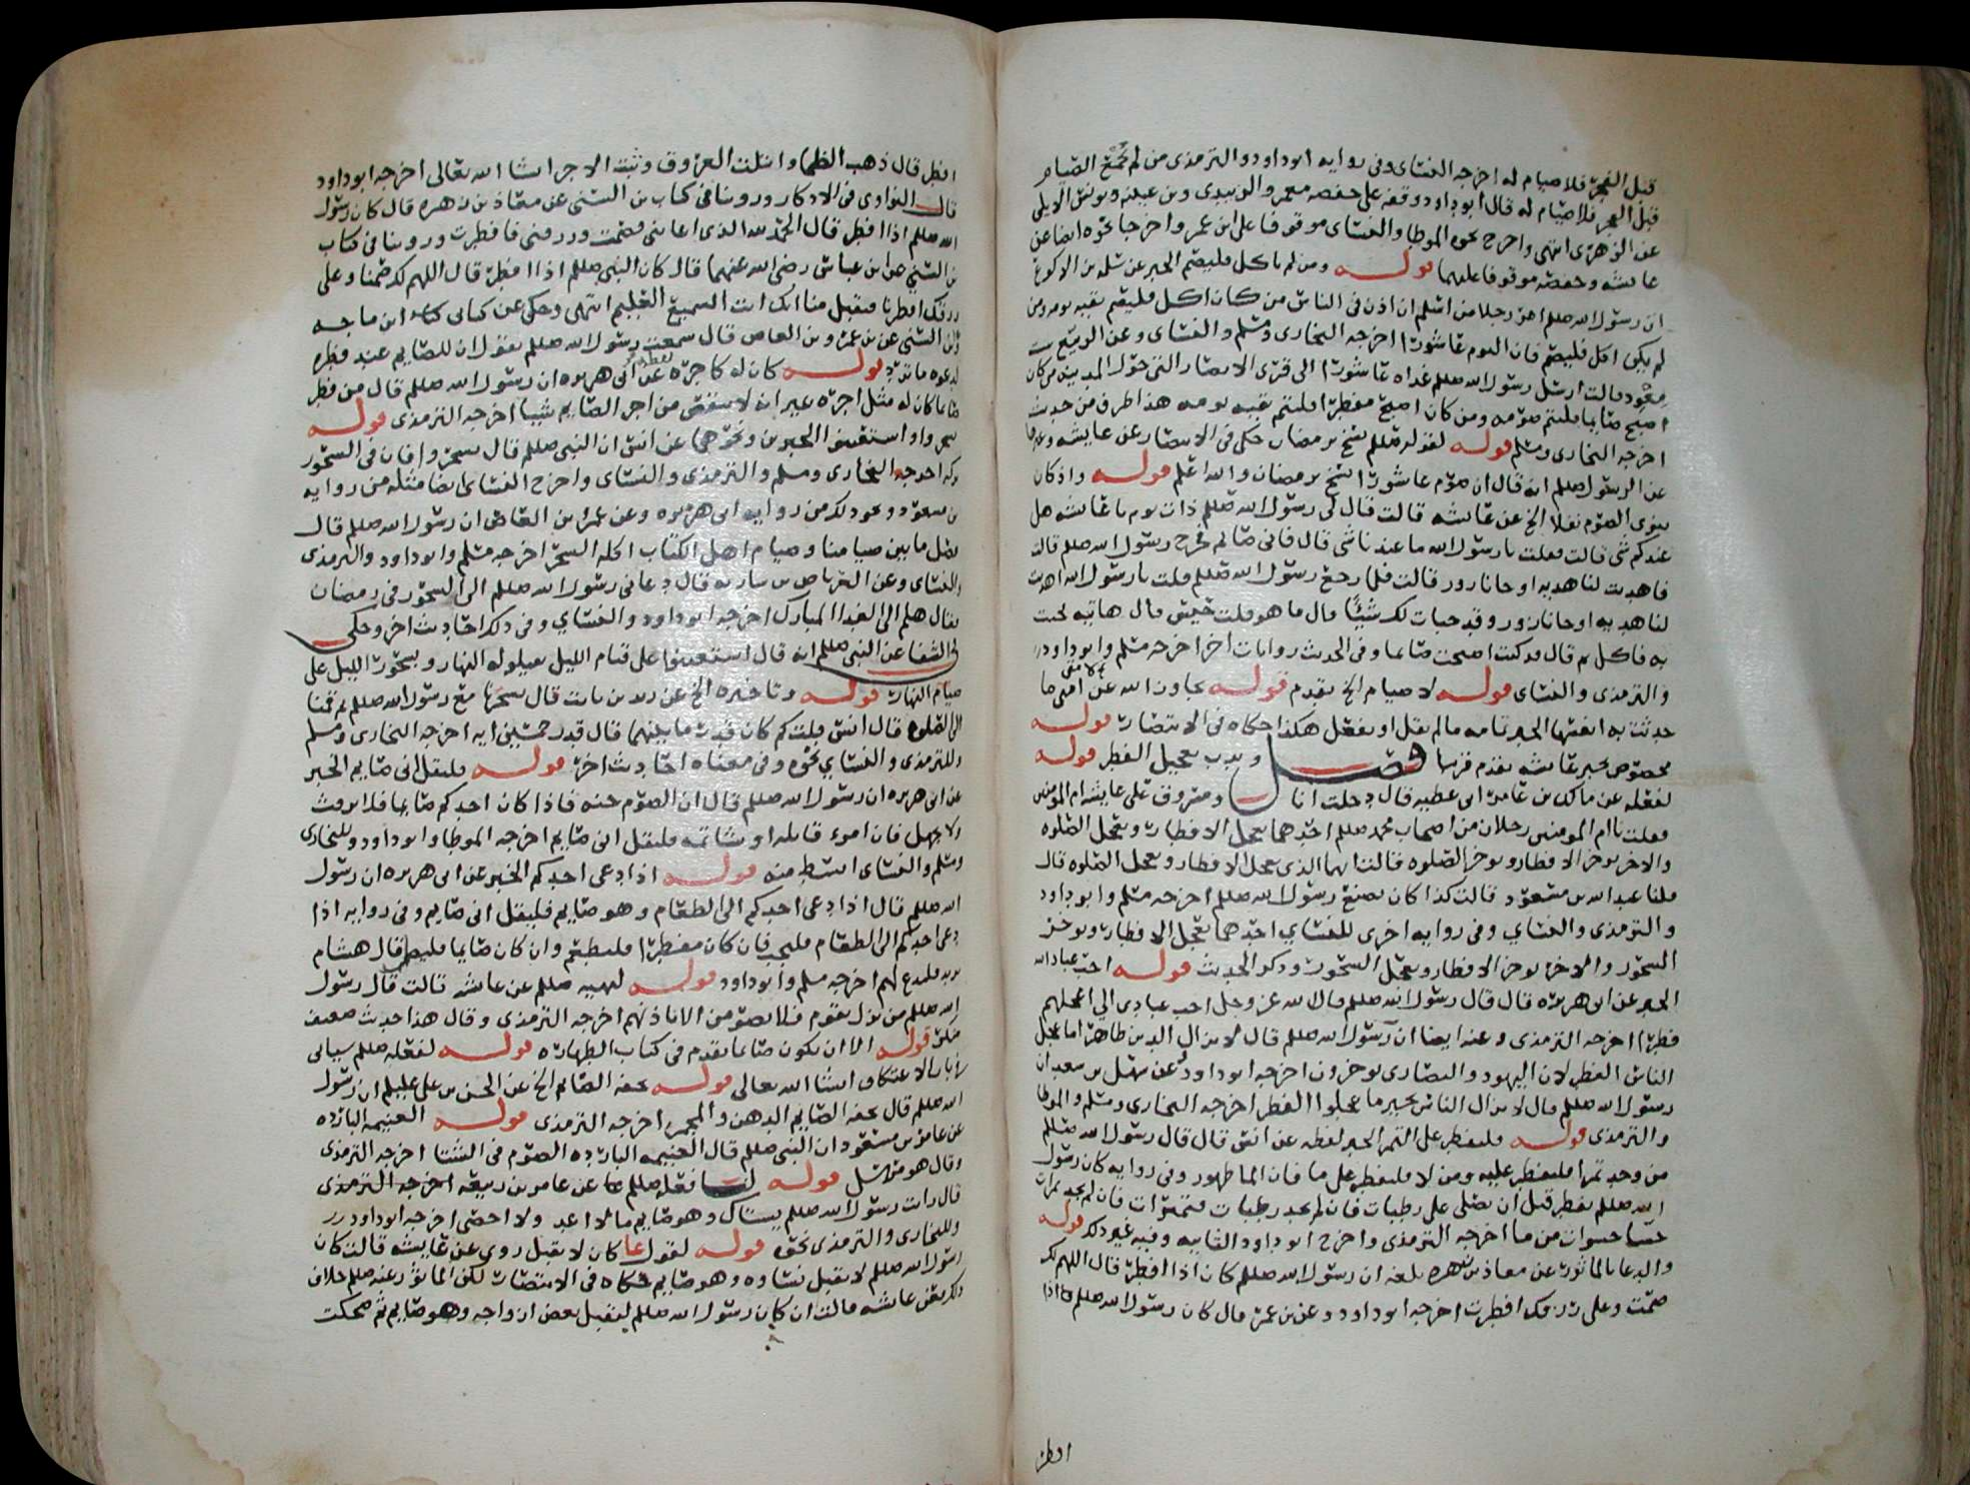 قبل الفجر فلا صيام له اخرجه النسائي وفي روايه ابو داود والترمذي من لم يجمع الصيام
قبل الفجر فلا صيام له قال ابو داود وقفه على حفصه معمر والزبيدي وبن عيينه ويونس الايلي
عن الزهري انتهى واخرج نحوه الموطا والنسائي موقوفا على ابن عمر واخرجا نحوه ايضا عن
عايشه وحفصه موقوفا عليهما قوله ومن لم ياكل فليصم الخبر عن سلمه بن الاكوع
ان رسول الله صللم امر رجلا من اسلم ان اذن في الناس من كان اكل فليصم بقيه يومه ومن
لم يكن اكل فليصم فان اليوم عاشورا اخرجه البخاري ومسلم والنسائي وعن الربيع بنت
معوذ قالت ارسل رسول الله صللم غداه عاشورا الى قرى الانصار التي حول المدينه من كان
اصبح صايما فليتم صومه ومن كان اصبح مفطرا فليتم بقيه يومه هذا طرف من حديث
اخرجه البخاري ومسلم قوله لقوله صللم نسخ برمضان حكى في الانتصار عن عايشه
عن الرسول صللم انه قال ان صوم عاشورا نسخ برمضان والله اعلم قوله واذ كان
ينوي الصوم نفلا الخ عن عايشه قالت قال لي رسول الله صللم ذات يوم يا عايشه هل
عندكم شي قالت فقلت يا رسول الله ما عندنا شي قال فاني صايم فخرج رسول الله صللم قالت
فاهديت لنا هديه او جانا زور قالت فلما رجع رسول الله صللم قلت يا رسول الله اهديت
لنا هديه او جانا زور وقد خبات لك شيئا قال ما هو قلت حيس قال هاتيه فجئت
به فاكل ثم قال قد كنت اصبحت صايما وفي الحديث روايات اخر اخرجه مسلم وابو داود
والترمذي والنسائي قوله لا صيام الخ تقدم قوله تجاوز الله عن امتي ما
حدثت به انفسها الخبر تمامه ما لم يقل او يفعل هكذا حكاه في الانتصار قوله
مخصوص بخبر عايشه تقدم قريبا فصل وندب تعجيل الفطر قوله
لفعله عن مالك بن عامر ابي عطيه قال دخلت انا ومسروق على عايشه ام المومنين
فقلت يا ام المومنين رجلان من اصحاب محمد صللم احدهما يعجل الافطار ويعجل الصلوه
والاخر يوخر الافطار ويوخر الصلوه فقالت ايهما الذي يعجل الافطار ويعجل الصلوه قال
قلنا عبد الله بن مسعود قالت كذا كان يصنع رسول الله صللم اخرجه مسلم وابو داود
والترمذي والنسائي وفي روايه اخرى للنسائي احدهما يعجل الافطار ويوخر
السحور والاخر يوخر الافطار ويعجل السحور وذكر الحديث قوله احب عباد الله
الخبر عن ابي هريره قال قال رسول الله صللم قال الله عز وجل احب عبادي الي اعجلهم
فطرا اخرجه الترمذي وعنه ايضا ان رسول الله صللم قال لا يزال الدين ظاهرا ما عجل
الناس الفطر لان اليهود والنصارى يوخرون اخرجه ابو داود وعن سهل بن سعد ان
رسول الله صللم قال لا يزال الناس بخير ما عجلوا الفطر اخرجه البخاري ومسلم والموطا
والترمذي قوله فليفطر على التمر الخبر لفظه عن انس قال قال رسول الله صللم
من وجد تمرا فليفطر عليه ومن لا فليفطر على ما فان الما طهور وفي روايه كان رسول
الله صللم يفطر قبل ان يصلي على رطبات فان لم يجد رطبات فتميرات فان لم يجد تمرات
حسا حسوات من ما اخرجه الترمذي واخرج ابو داود الثانيه وفيه غير ذلك قوله
والدعا بالماثور عن معاذ بن زهره بلغه ان رسول الله صللم كان اذا افطر قال اللهم لك
صمت وعلى رزقك افطرت اخرجه ابو داود وعن بن عمر قال كان رسول الله صللم اذا
افطر
افطر قال ذهب الظما وابتلت العروق وثبت الاجر انشا الله تعالى اخرجه ابو داود
قال النواوي في الاذكار وروينا في كتاب بن السني عن معاذ بن زهره قال كان رسول
الله صللم اذا افطر قال الحمد لله الذي اعانني فصمت ورزقني فافطرت وروينا في كتاب
بن السني عن ابن عباس رضي الله عنهما قال كان النبي صللم اذا افطر قال اللهم لك صمنا وعلى
رزقك افطرنا فتقبل منا انك انت السميع العليم انتهى وحكى عن كتابي ابن ماجه
وابن السني عن بن عمرو بن العاص قال سمعت رسول الله صللم يقول ان للصايم عند فطره
لدعوه ما ترد قوله كان له كاجره عن ابي هريره ان رسول الله صللم قال من فطر
صايما كان له مثل اجره غير انه لا ينقص من اجر الصايم شيا اخرجه الترمذي قوله
تسحروا واستعينوا الخبرين ونحوهما عن انس ان النبي صللم قال تسحروا فان في السحور
بركه اخرجه البخاري ومسلم والترمذي والنسائي واخرج النسائي ايضا مثله من روايه
بن مسعود ونحو ذلك من روايه ابي هريره وعن عمرو بن العاص ان رسول الله صللم قال
فصل ما بين صيامنا وصيام اهل الكتاب اكله السحر اخرجه مسلم وابو داود والترمذي
والنسائي وعن العرباض بن ساريه قال دعاني رسول الله صللم الى السحور في رمضان
فقال هلم الى الغدا المبارك اخرجه ابو داود والنسائي وفي ذلك احاديث اخر وحكي
في الشفا عن النبي صللم انه قال استعينوا على قيام الليل بقيلوله النهار وبسحور الليل على
صيام النهار قوله وتاخيره الخ عن زيد بن ثابت قال تسحرنا مع رسول الله صللم ثم قمنا
الى الصلوه قال انس قلت كم كان قدر ما بينهما قال قدر خمسين ايه اخرجه البخاري ومسلم
وللترمذي والنسائي نحوه وفي معناه احاديث اخر قوله فليقل اني صايم الخبر
عن ابي هريره ان رسول الله صللم قال ان الصوم جنه فاذا كان احدكم صايما فلا يرفث
ولا يجهل فان امرء قاتله او شاتمه فليقل اني صايم اخرجه الموطا وابو داود وللبخاري
ومسلم والنسائي ابسط منه قوله اذا دعي احدكم الخبر عن ابي هريره ان رسول
الله صللم قال اذا دعي احدكم الى الطعام وهو صايم فليقل اني صايم وفي روايه اذا
دعي احدكم الى الطعام فليجب فان كان مفطرا فليطعم وان كان صايما فليصل قال هشام
يريد فليدع لهم اخرجه مسلم وابو داود قوله لنهيه صللم عن عايشه قالت قال رسول
الله صللم من نزل بقوم فلا يصومن الا باذنهم اخرجه الترمذي وقال هذا حديث ضعيف
منكر قوله الا ان يكون صايما تقدم في كتاب الطهاره قوله لفعله صللم سياتي
في باب الاعتكاف انشا الله تعالى قوله تحفه الصايم الخ عن الحسن بن علي عليلم ان رسول
الله صللم قال تحفه الصايم الدهن والمجمر اخرجه الترمذي قوله الغنيمه البارده
عن عامر بن مسعود ان النبي صللم قال الغنيمه البارده الصوم في الشتا اخرجه الترمذي
وقال هو مرسل قوله لنا فعله صللم عن عامر بن ربيعه اخرجه الترمذي
قال رايت رسول الله صللم يستاك وهو صايم ما لا اعد ولا احصي اخرجه ابو داود
وللبخاري والترمذي نحوه قوله لقول عا كان لا يقبل روي عن عايشه قالت كان
رسول الله صللم لا يقبل نساوه وهو صايم حكاه في الانتصار لكن الماثور عنه صللم خلاف
ذلك فعن عايشه قالت ان كان رسول الله صللم ليقبل بعض ازواجه وهو صايم ثم ضحكت